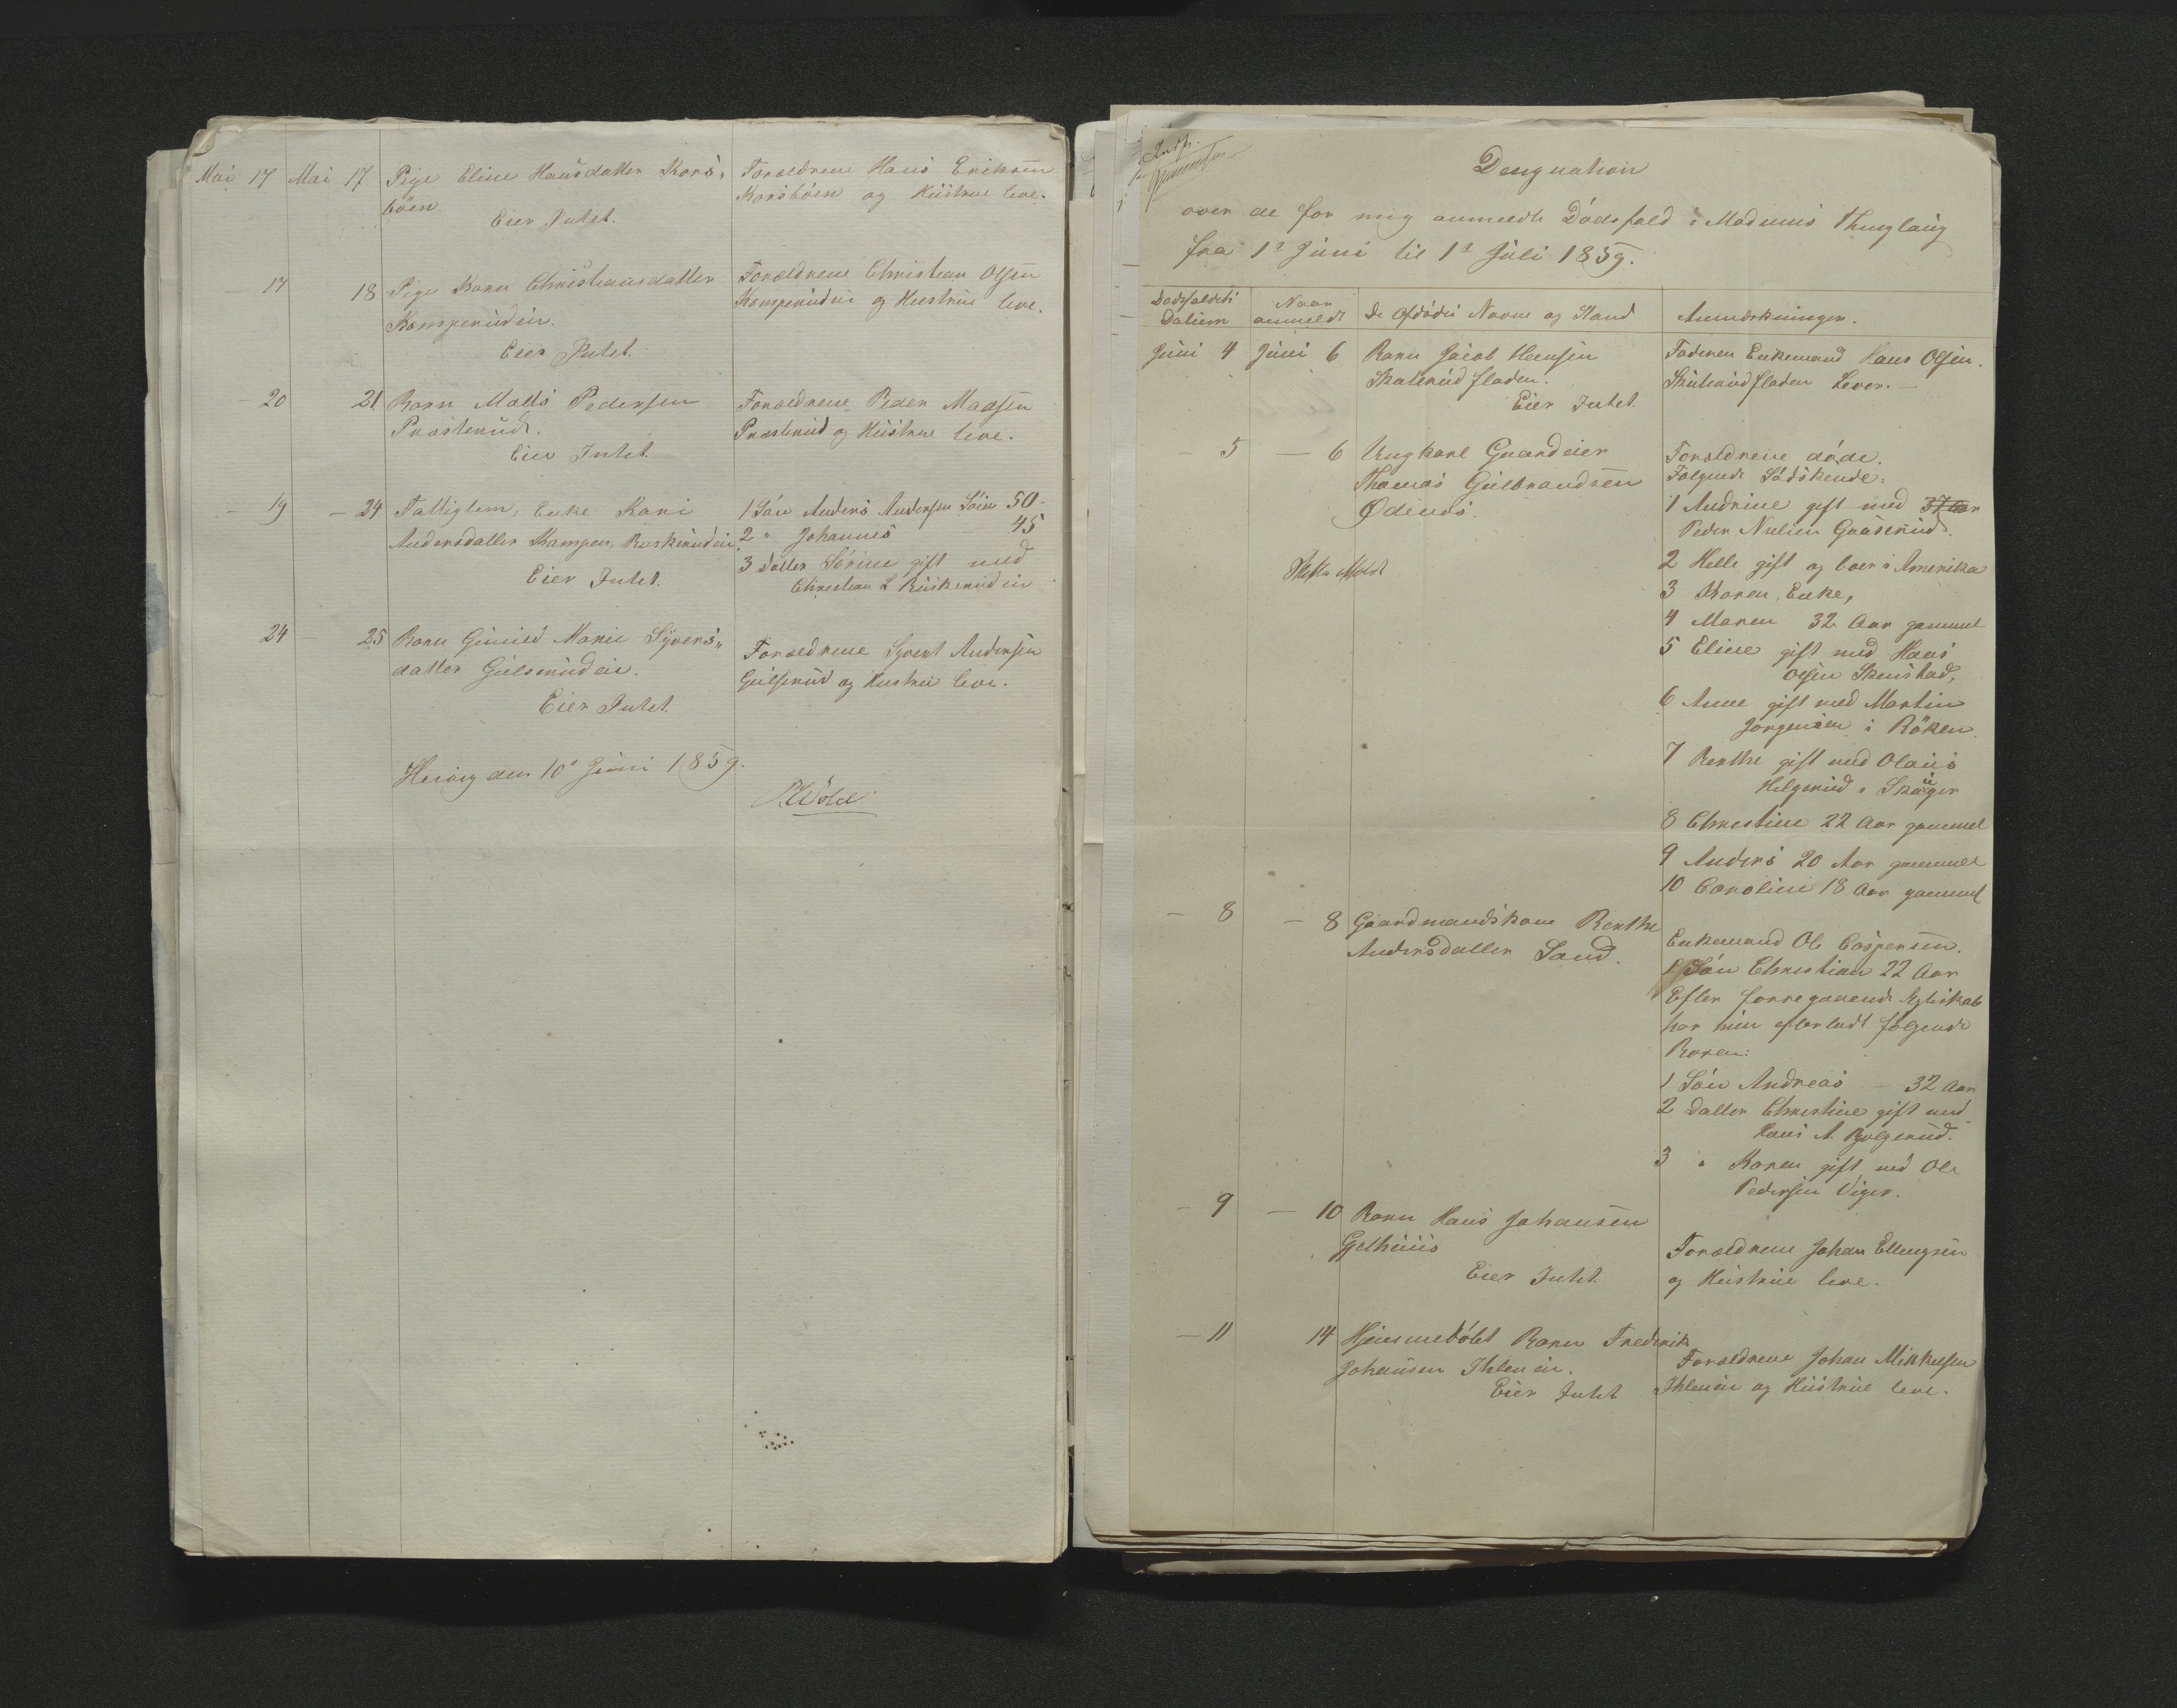 Mai 17 Mai 17 Pige Eline Hansdatter Kors-
böen.
Eier Intet.
Forældrene Hans Eriksen
Korsböen og Hustrue leve.
17 18 Pige Karn Christiansdatter
Kamperudeie.
Eier Intet.
Forældrene Christian Olsen
Kamperudeie og Hustrue leve.
- 20 21 Barn Mathis Pedersen
Præsterud.
Eier Intet.
Forældrene Peder Madsen
Præsterud og Hustrue leve.
- 19 - 24 Fattiglem, Enke Kari
Andersdatter Kampen, Ruskerudeie.
Eier Intet.
1 Sön Anders Andersen Löia 50-
2 " Johannes 45
3 datter Sörine gift med
Christian L Ruskerudeie
24 - 25 Barn Gunild Marie Syvers-
datter Gulserudeie.
Eier Intet.
Forældrene Syvert Andersen
Gulserud og Hustrue leve.
Hervig den 10' Juni 1859.
Designation
over de for mig anmeldte Dödsfald i Modums Thinglaug
fra 1ª Juni til 1ª Juli 1859.
Dödsfaldets
Datum
Naar
anmeldt
De Afdödes Navne og Stand
Anmærkninger.
Juni 4 Juni 6 Barn Jacob Hansen
Skalerudfladen.
Eier Intet.
Faderen Enkemand Hans Olsen.
Skalerudfladen Lever. -
- 5 - 6 Ungkarl Gaardeier
Thomas Gulbrandsen
Ødenes.
Forældrene döde.
Fölgende Södskende:
1 Andrine gift med 37 Aar
Peder Nielsen Gaaserud.
2 Helle gift og boer i Amerika
3 Karen, Enke,
4 Maren 32 Aar gammel
5 Eline gift med Hans
Olsen Skenstad,
6 Anne gift med Martin
Jorgensen i Röken.
7 Berthe gift med Olaus
Helgerud i Skauger
8 Christine 22 Aar gammel
9 Anders 20 Aar gammel
10 Caroline 18 Aar gammel
- 8 - 8 Gaardmandskone Berthe
Andersdatter Sand.
Enkemand Ole Caspersen.
1 Sön Christian 22 Aar
Efter forregaaende Egteskab
har hun efterladt fölgende
Boren:
1 Sön Andreas - 32 Aar
2 datter Christine gift med
Hans A. Bolgerud.
3 " Karen gift med Ole
Pedersen Viger.
- 9 - 10 Barn Hans Johansen
Gjethuus
Eier Intet.
Forældrene Johan Ellingsen
og Hustrue leve.
- 11 14 Hjemmedöbt Barn Frederik
Johansen Ihleneie.
Eier Intet
Forældrene Johan Mikkelsen
Ihleneie og Hustrue leve.